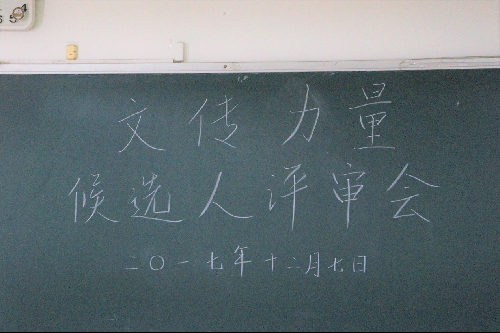 文传力量
候选人评审会
二〇一七年十二月七日